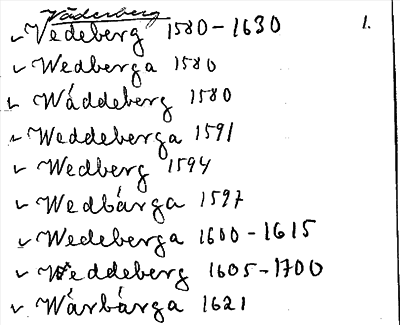 Väderberg
✓ Vedeberg 1580-1630 1.
✓ Wedberga 1580
✓ Wáddeberg 1580
✓ Weddeberga 1591
✓ Wedberg 1594
✓ Wedbárga 1597
✓ Wedeberga 1600-1615
✓ Weddeberg 1605-1700
✓ Wárbárga 1621